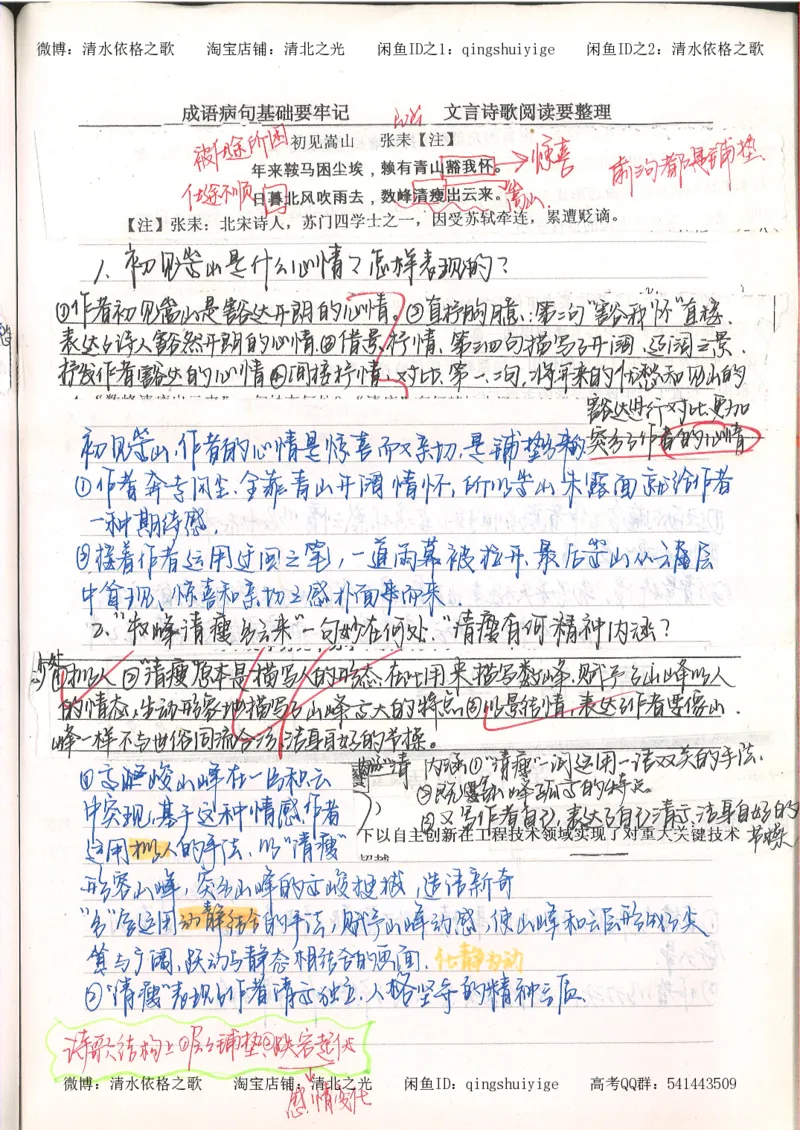 微博：清水依格之歌 淘宝店铺：清北之光 闲鱼ID之1：qingshuiyige 闲鱼ID之2：清水依格之歌
成语病句基础要牢记 文言诗歌阅读要整理
被仕途所困 初见嵩山 张耒【注】
年来鞍马困尘埃，赖有青山豁我怀。 惊喜
前三句都是铺垫
仕途不顺 日暮北风吹雨去，数峰清瘦出云来。 嵩山
【注】张耒：北宋诗人，苏门四学士之一，因受苏轼牵连，累遭贬谪。
1. 初见嵩山是什么心情？怎样表现的？
①作者初见嵩山是豁达开朗的心情。②直抒胸臆：第二句"豁我怀"直接
表达了诗人豁然开朗的心情③借景抒情，第三四句描写了开阔、辽阔之景，
抒发作者豁达的心情④间接抒情、对比，第一、二句，将年来的忧愁和见山的
豁达进行对比，更加
突出了作者的心情
初见嵩山，作者的心情是惊喜而又亲切，是铺垫出来的
①作者奔走风尘，全靠青山开阔情怀，所以嵩山未露面就给作者
一种期待感。
②接着作者运用过间之笔，一道雨幕被拉开，最后嵩山从云层
中算现，惊喜和亲切之感扑面而来．
2."数峰清瘦出云来"一句妙在何处．"清瘦有何精神内涵？
妙处
①拟人②"清瘦"原本是描写人的形态，在此用来描写数峰，赋予了山峰以人
的情态，生动形象地描写了山峰高大的特点③以景结情，表达了作者要像山
峰一样不与世俗同流合污，洁身自好的节操。
①高峻山峰在一片积云
中实现，基于这种情感，作者
运用拟人的手法，以"清瘦"
形容山峰，突出山峰的高峻挺拔，造语新奇
内涵①"清瘦"一词运用一语双关的手法．
②既写山峰高的特点
③又写作者自己，表达了自己清高、洁身自好的
节操
下以自主创新在工程技术领域实现了对重大关键技术
"出"字运用动静结合的手法，赋予山峰动感，使山峰和云层形成了尖
耸与广阔，跃动与静态相结合的画面．化静为动
②"清瘦"表现了作者清高独立、人格坚守的精神气质．
诗歌结构上①层层铺垫②跌宕起伏
感情变化
微博：清水依格之歌 淘宝店铺：清北之光 闲鱼ID：qingshuiyige 高考QQ群：541443509